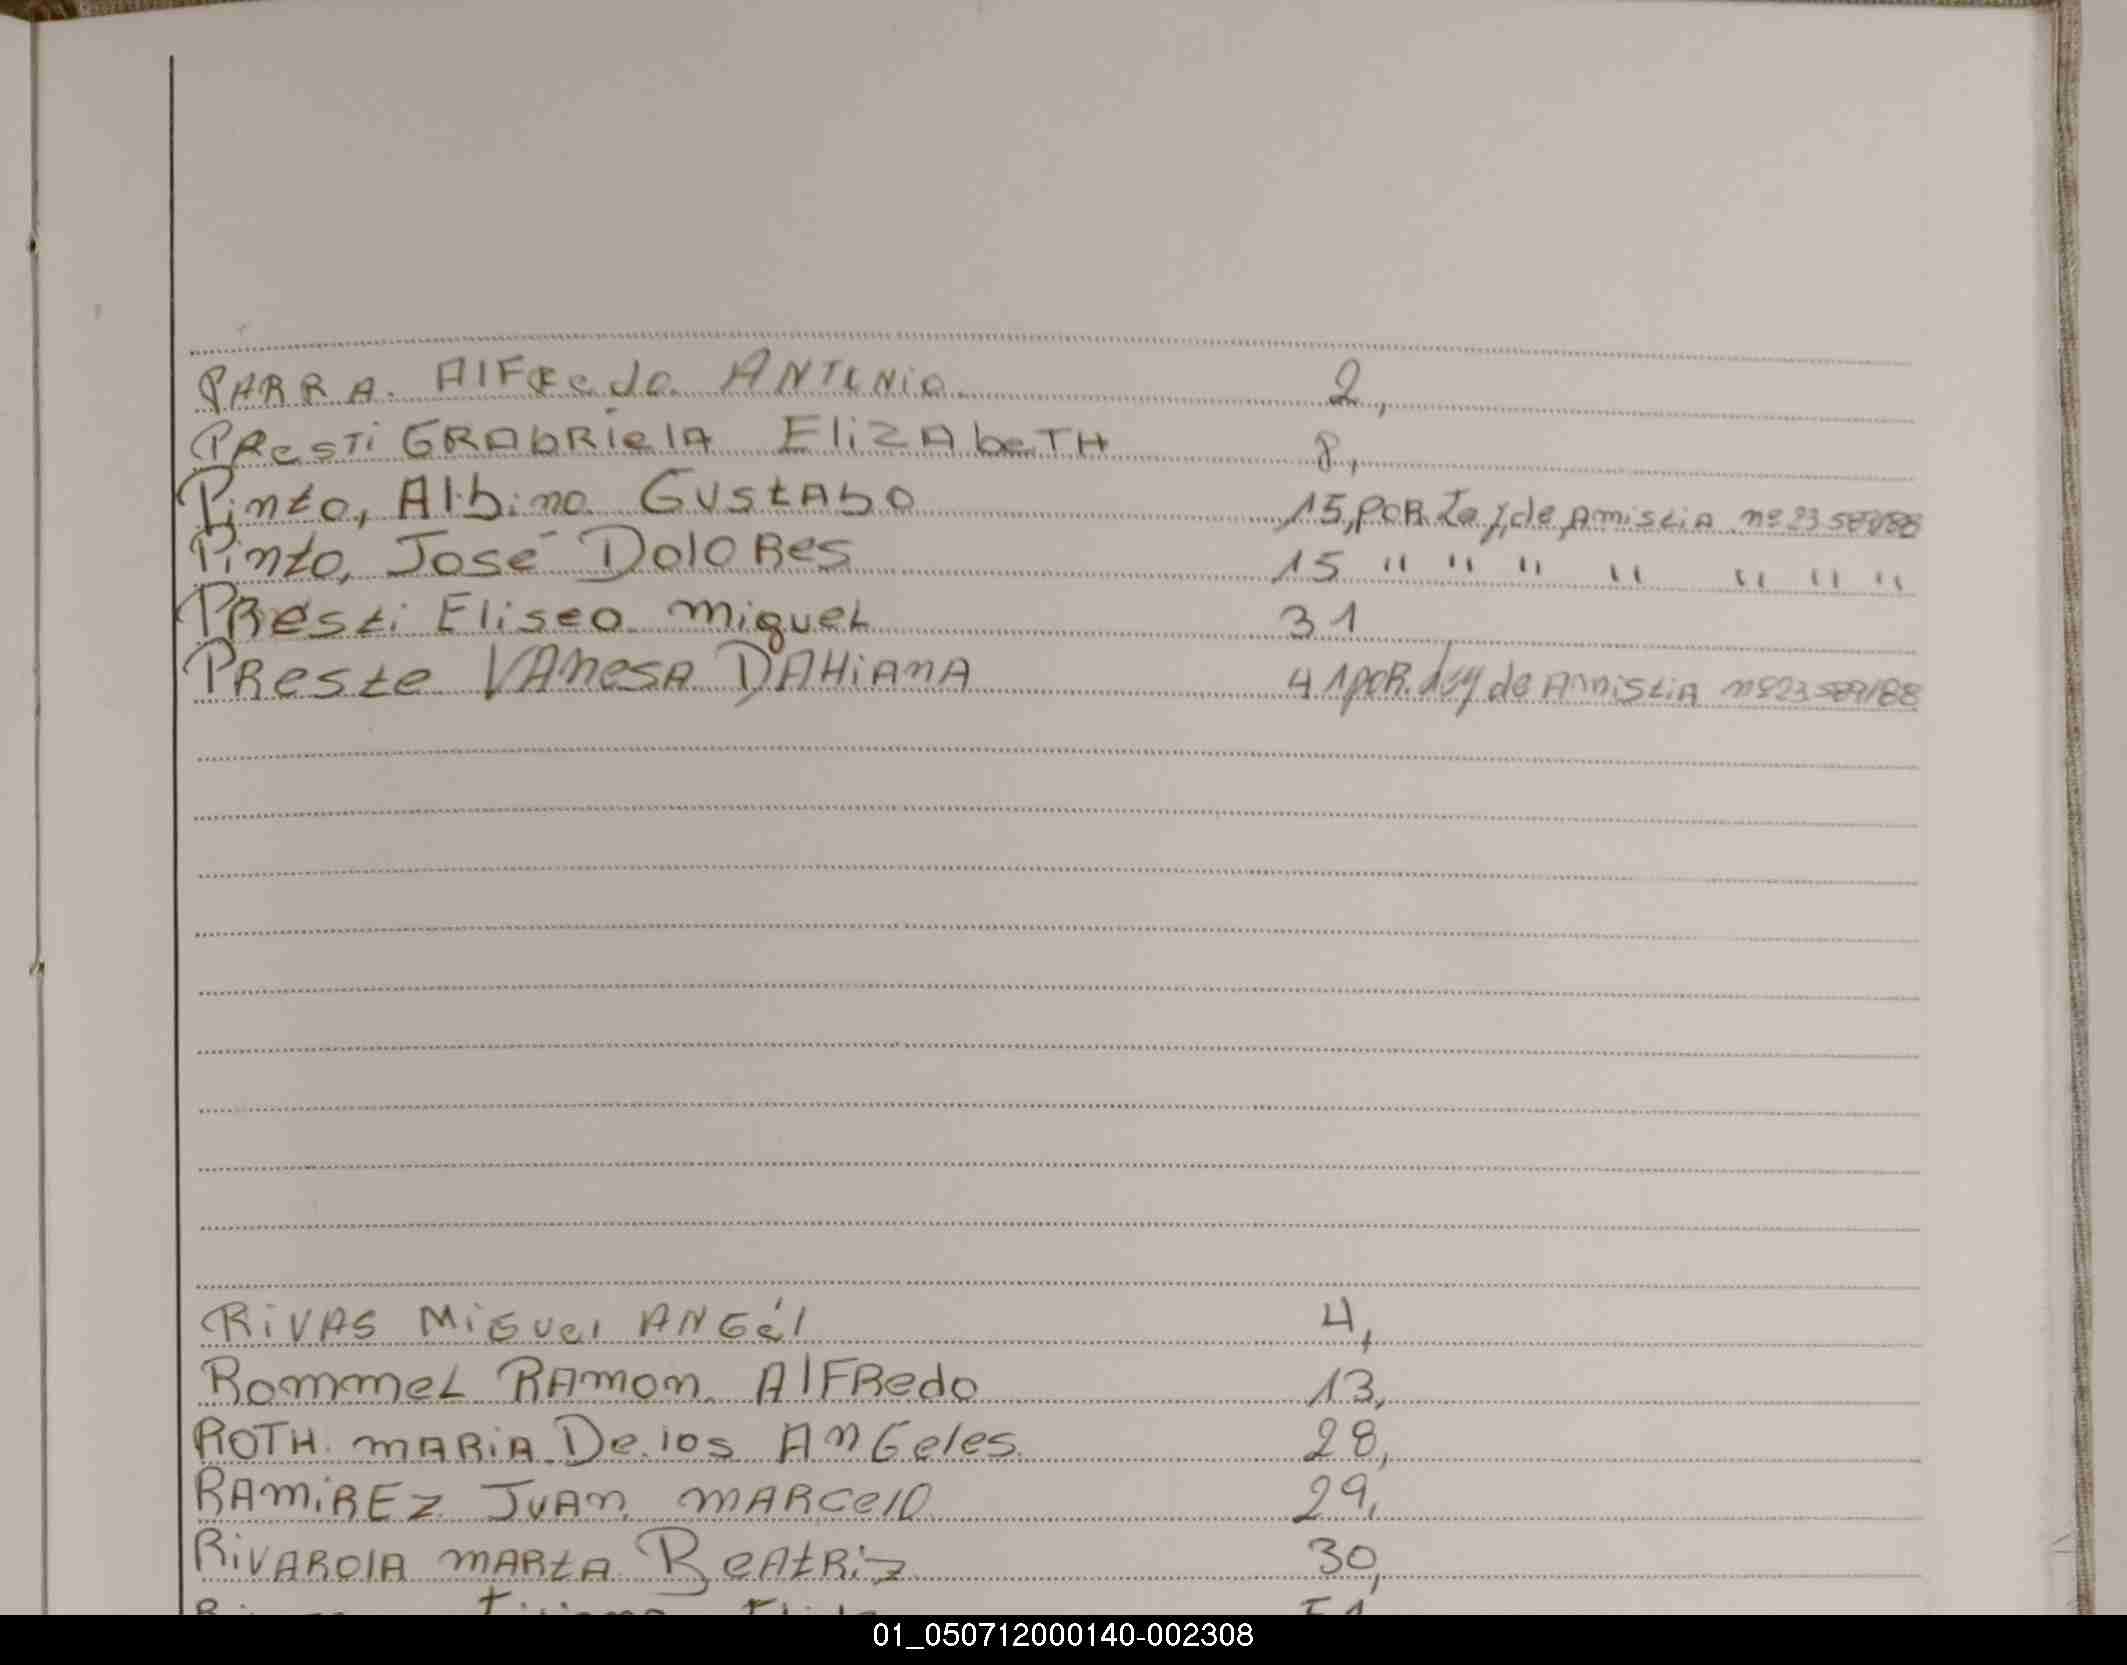 PARRA. AlFredo ANTONio 2,
PResTi GRAbRielA EliZAbeTH 8,
Pinto, Albino GustAbo 15, poR Ley de Amistia nº 23 589/88
Pinto, José DoloRes 15 " " " " " " "
PResti Eliseo miguel 31
PReste VAnesA DAHiAnA 41 poR. ley de Amistia nº 23 589/88
RiVAS MiGuel ANGél 4,
Rommel RAmon AlFRedo 13,
ROTH mARiA De los AnGeles 28,
RAmiREZ JuAn mARcelo 29,
RivARolA mARtA BeAtRiz 30,
01_050712000140-002308